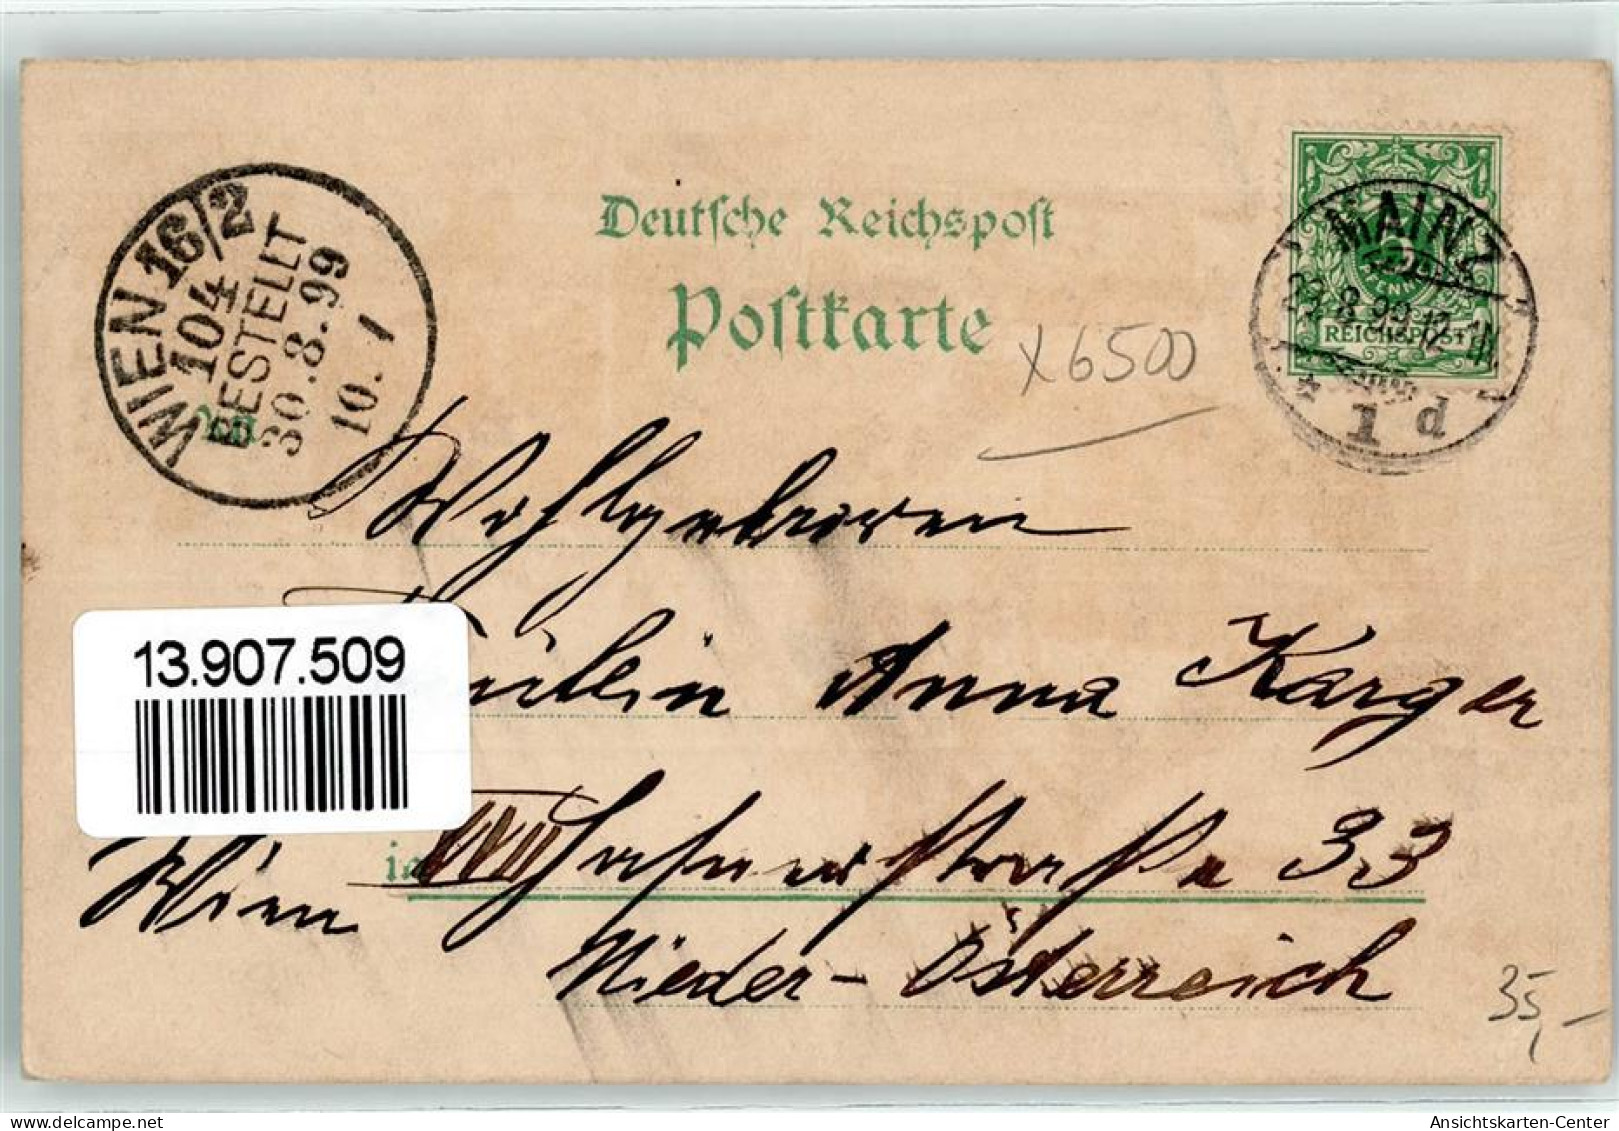 Deutsche Reichspost
Postkarte
WIEN 16/2
104
BESTELLT
30.8.99
10.-1
MAINZ
29.8.99.12-1N.
* 1 d
PFENNIG
REICHSPOST
x6500
Wohlgeboren
Fräulein Anna Karger
13.907.509
Wien in XVIII straße 33
Nieder-Österreich
35,-
AnsichtsKarten-Center